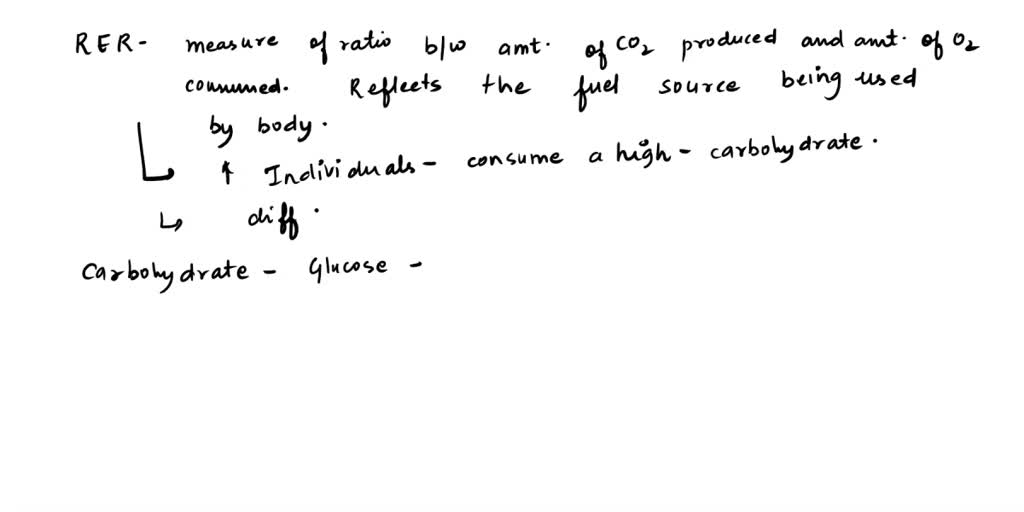 RER- measure of ratio b/w amt. of CO₂ produced and amt. of O₂
consumed. Reflects the fuel source being used
by body.
↑ Individuals - consume a high - carbohydrate.
↳ diff.
Carbohydrate - Glucose -